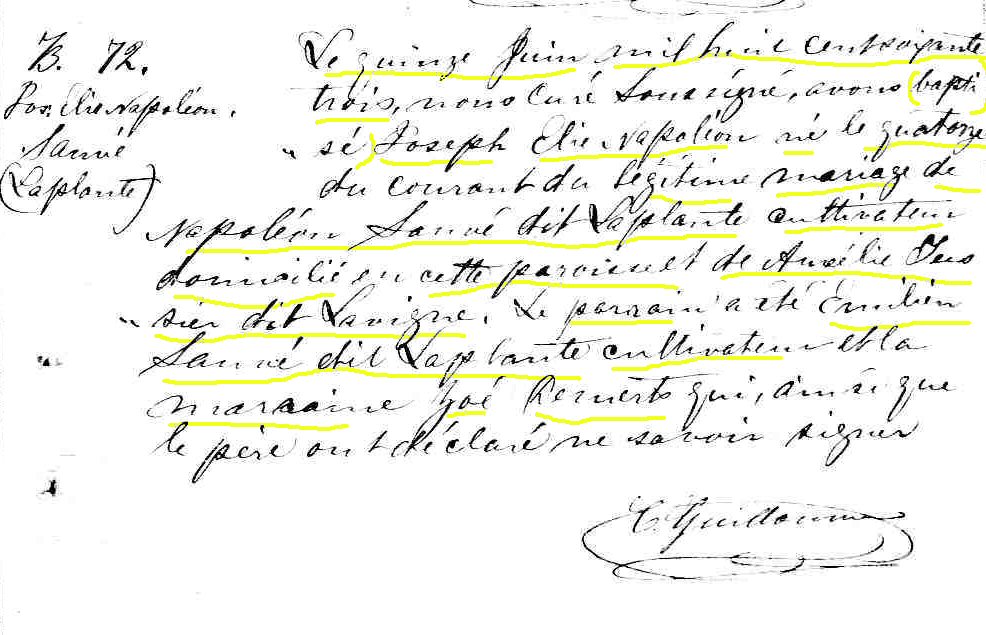 B. 72.
Jos. Elie Napoléon.
Sauvé
(Laplante)
Le quinze Juin mil huit cent soixante
trois, nous Curé Soussigné, avons bapti
sé Joseph Elie Napoléon né le quatorze
du courant du légitime mariage de
Napoléon Sauvé dit Laplante cultivateur
domicilié en cette paroisse et de Aurélie
dit Lavigne. Le parrain a été Emilien
Sauvé dit Laplante cultivateur et la
marraine Zoé qui, ainsi que
le père ont déclaré ne savoir signer
C. Guillaume